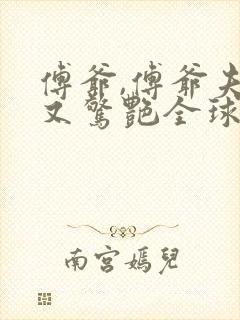 傅爺,傅爺夫
又驚艷全球
南宮嫣兒